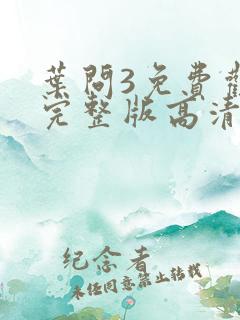 葉問3免費
完整版高清
纪念者
未经同意禁止转载